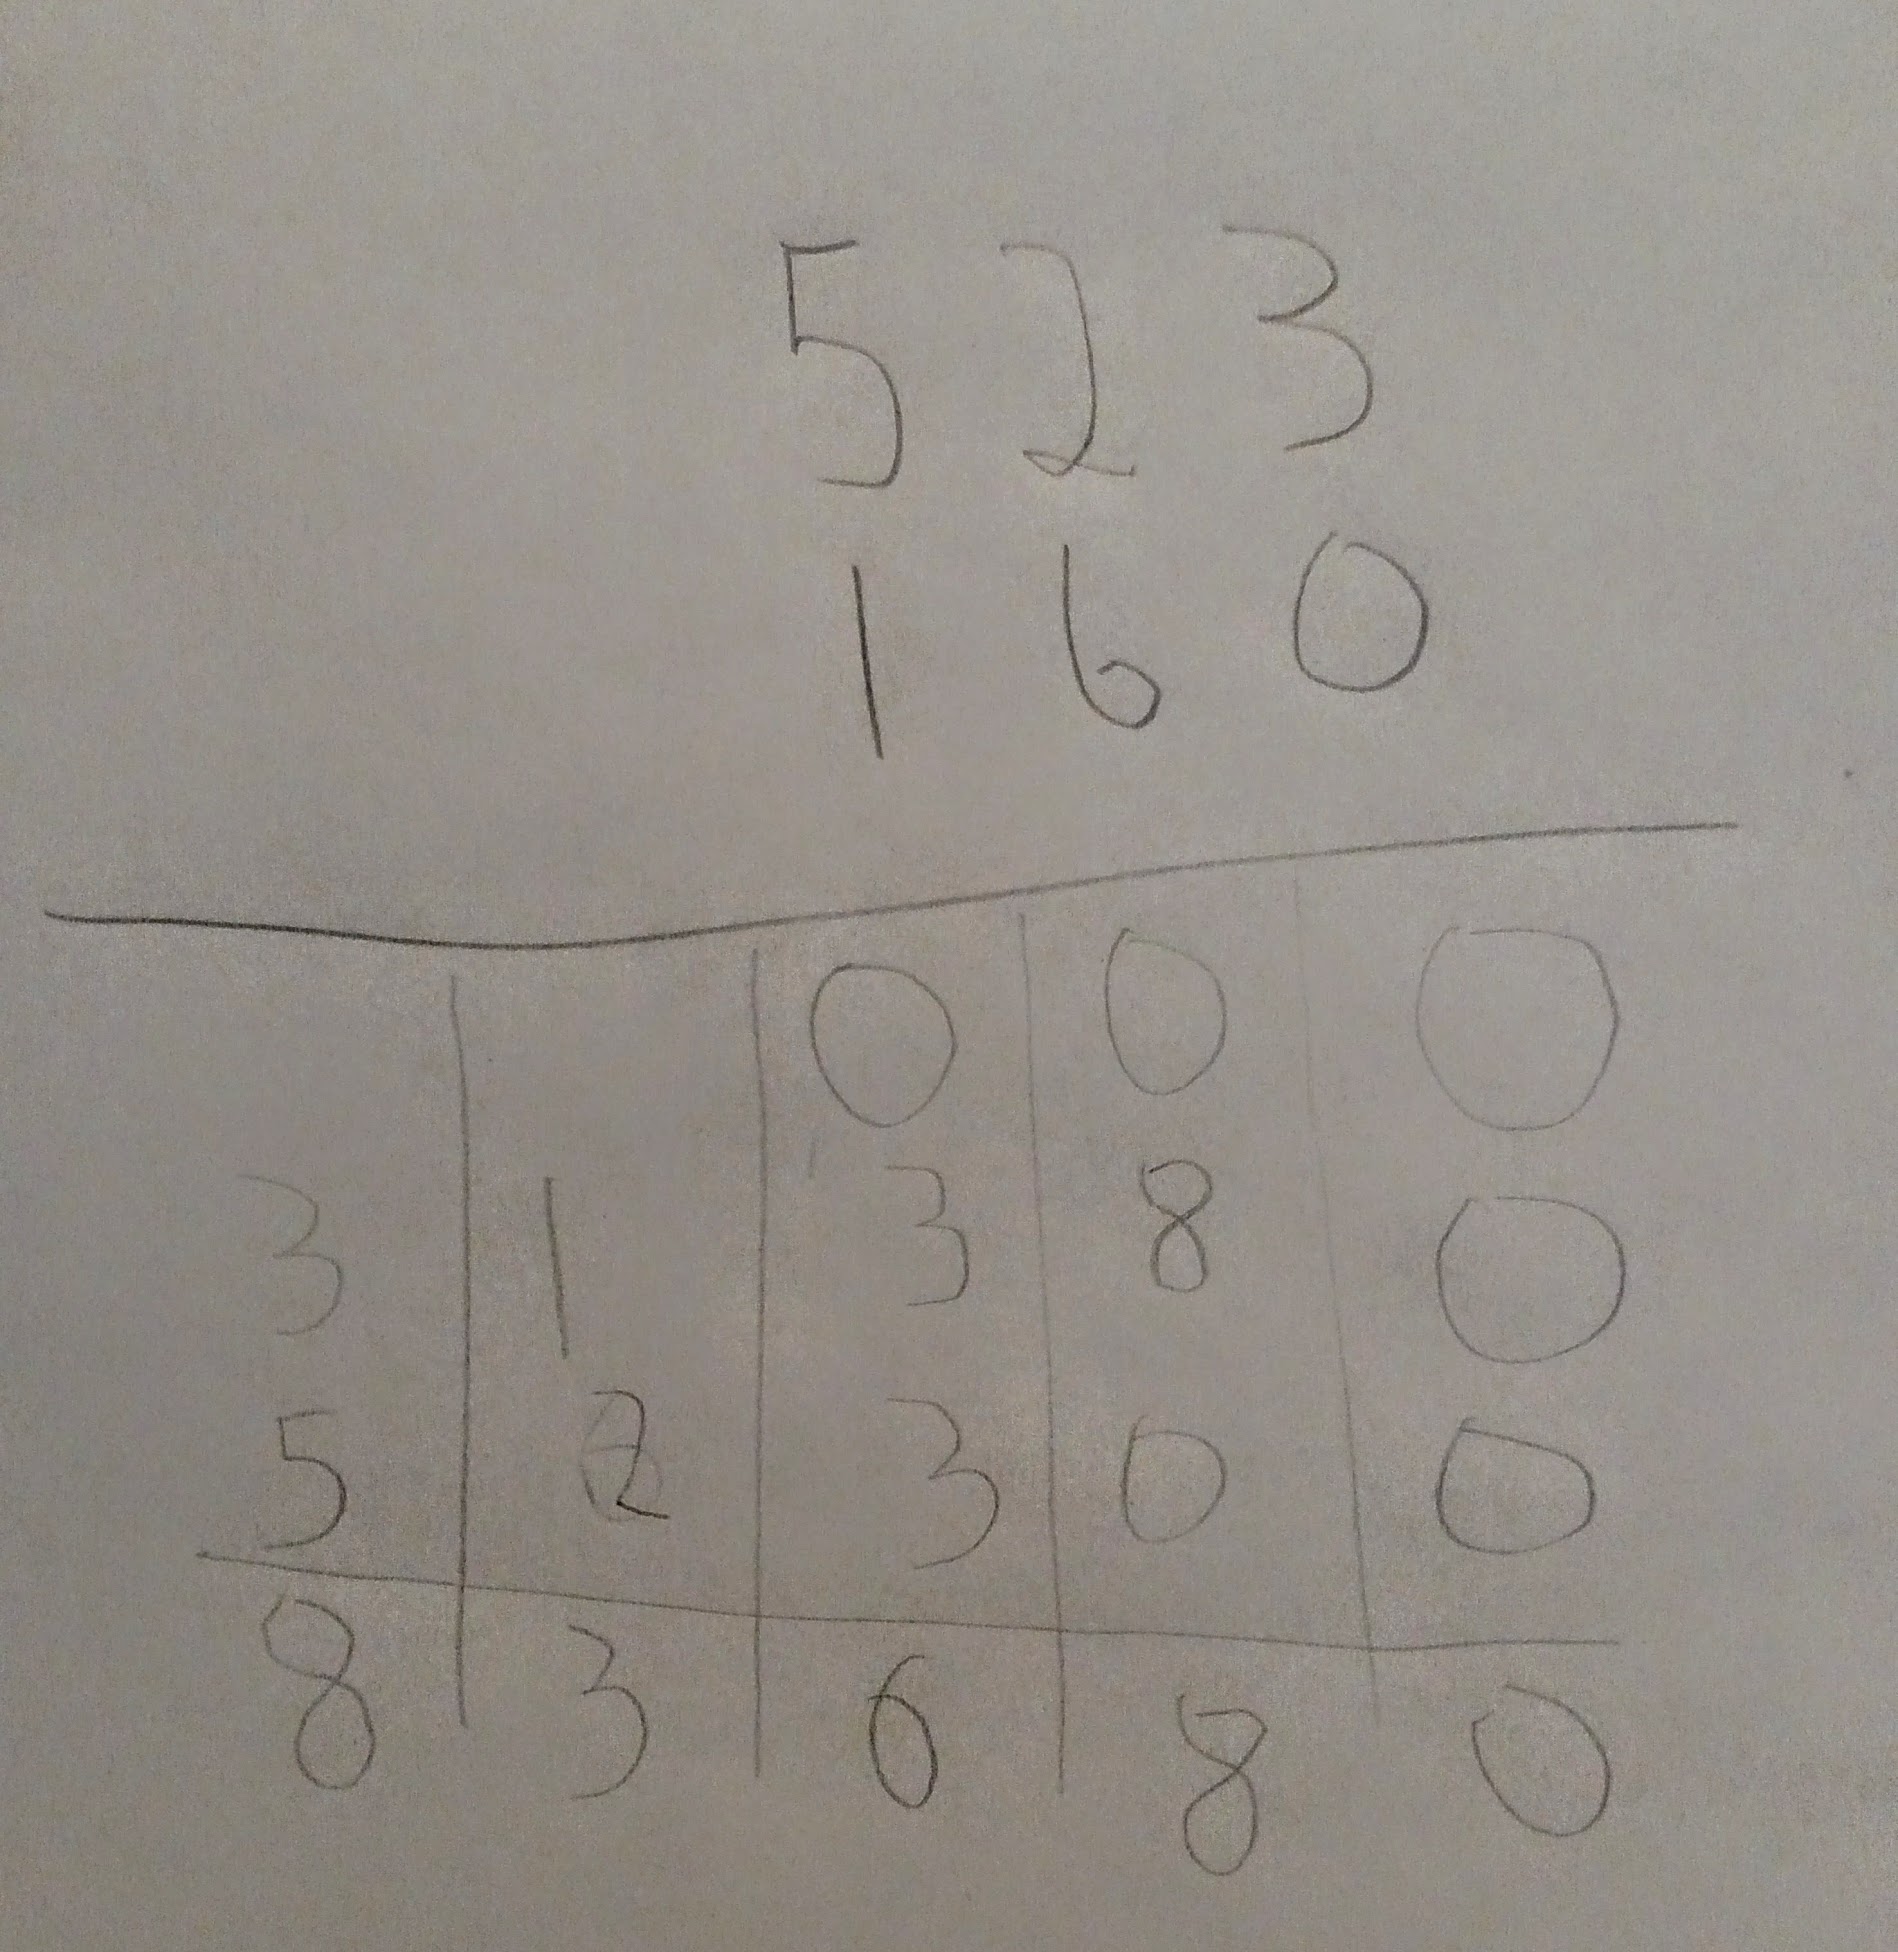 5 2 3
1 6 0
0 0 0
3 1 3 8 0
5 2 3 0 0
8 3 6 8 0